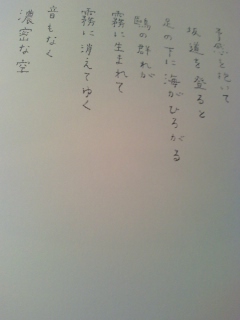 抱いて
坂道を登ると
足の下に海がひろがる
鴎の群れが
霧に生まれて
霧に消えてゆく
音もなく
濃密な空